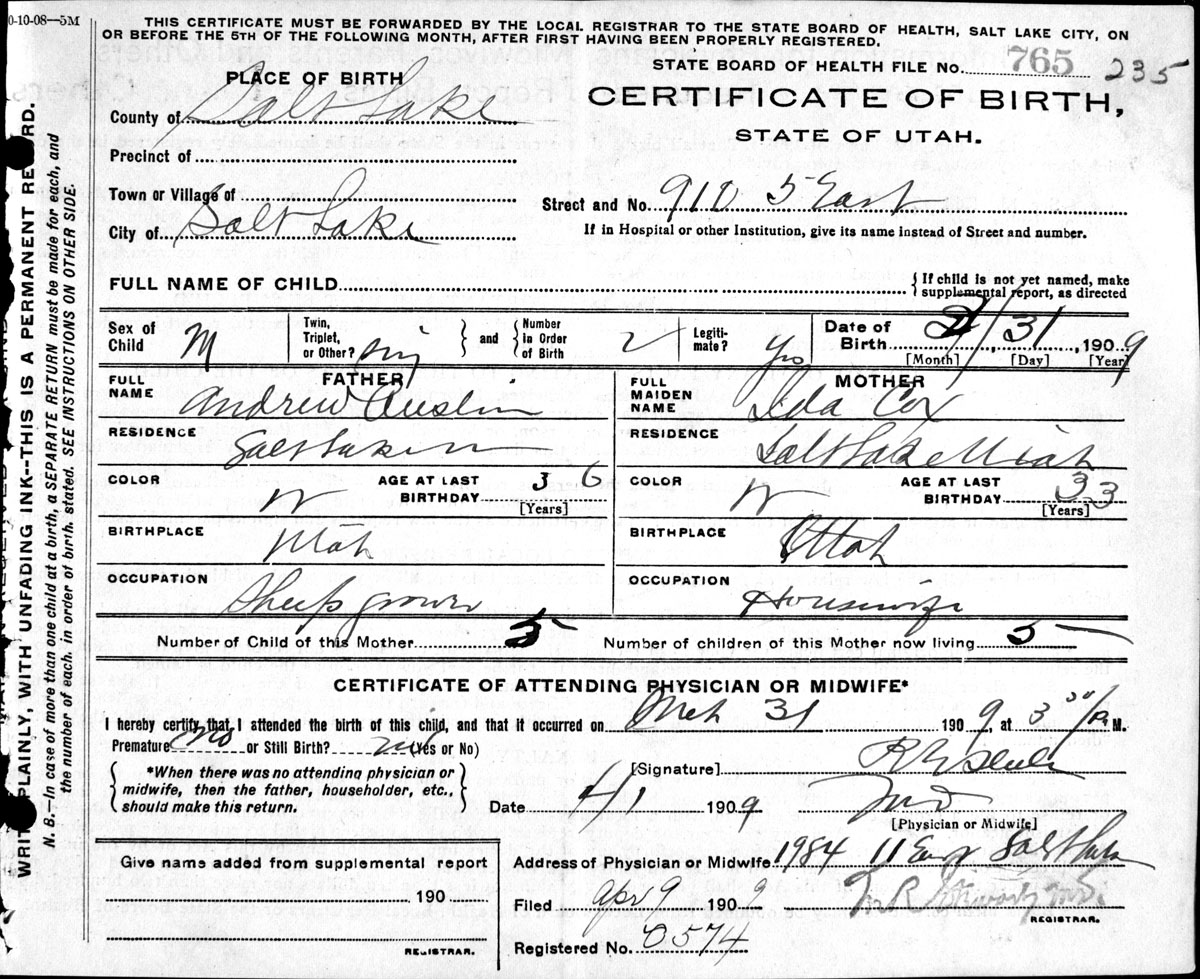 0-10-08—5M
THIS CERTIFICATE MUST BE FORWARDED BY THE LOCAL REGISTRAR TO THE STATE BOARD OF HEALTH, SALT LAKE CITY, ON
OR BEFORE THE 5TH OF THE FOLLOWING MONTH, AFTER FIRST HAVING BEEN PROPERLY REGISTERED.
STATE BOARD OF HEALTH FILE No. 765 235
PLACE OF BIRTH
CERTIFICATE OF BIRTH,
STATE OF UTAH.
County of Salt Lake
Precinct of
Town or Village of
Street and No. 910 5 East
City of Salt Lake
If in Hospital or other Institution, give its name instead of Street and number.
FULL NAME OF CHILD
{If child is not yet named, make supplemental report, as directed
Sex of Child M
Twin, Triplet, or Other? sing } and { Number in Order of Birth 2
Legitimate? Yes
Date of Birth 31, 1909
[Month] [Day] [Year]
FATHER
FULL NAME Andrew Austin
RESIDENCE Salt Lake
COLOR W AGE AT LAST BIRTHDAY 36 [Years]
BIRTHPLACE Utah
OCCUPATION Sheep grower
MOTHER
FULL MAIDEN NAME Ida Cox
RESIDENCE Salt Lake Utah
COLOR W AGE AT LAST BIRTHDAY 33 [Years]
BIRTHPLACE Utah
OCCUPATION Housewife
Number of Child of this Mother 5 Number of children of this Mother now living 5
CERTIFICATE OF ATTENDING PHYSICIAN OR MIDWIFE*
I hereby certify that I attended the birth of this child, and that it occurred on Mch 31 1909, at 3 30 P. M.
Premature no or Still Birth? no (Yes or No)
{ *When there was no attending physician or midwife, then the father, householder, etc., should make this return. }
[Signature]
Date 4/1 1909 MD
[Physician or Midwife]
Give name added from supplemental report
190
REGISTRAR.
Address of Physician or Midwife 1984 11 East Salt Lake
Filed Apr 9 1909
REGISTRAR.
Registered No. 0574
WRITE PLAINLY, WITH UNFADING INK--THIS IS A PERMANENT RECORD.
N. B.—In case of more than one child at a birth, a SEPARATE RETURN must be made for each, and
the number of each, in order of birth, stated. SEE INSTRUCTIONS ON OTHER SIDE.